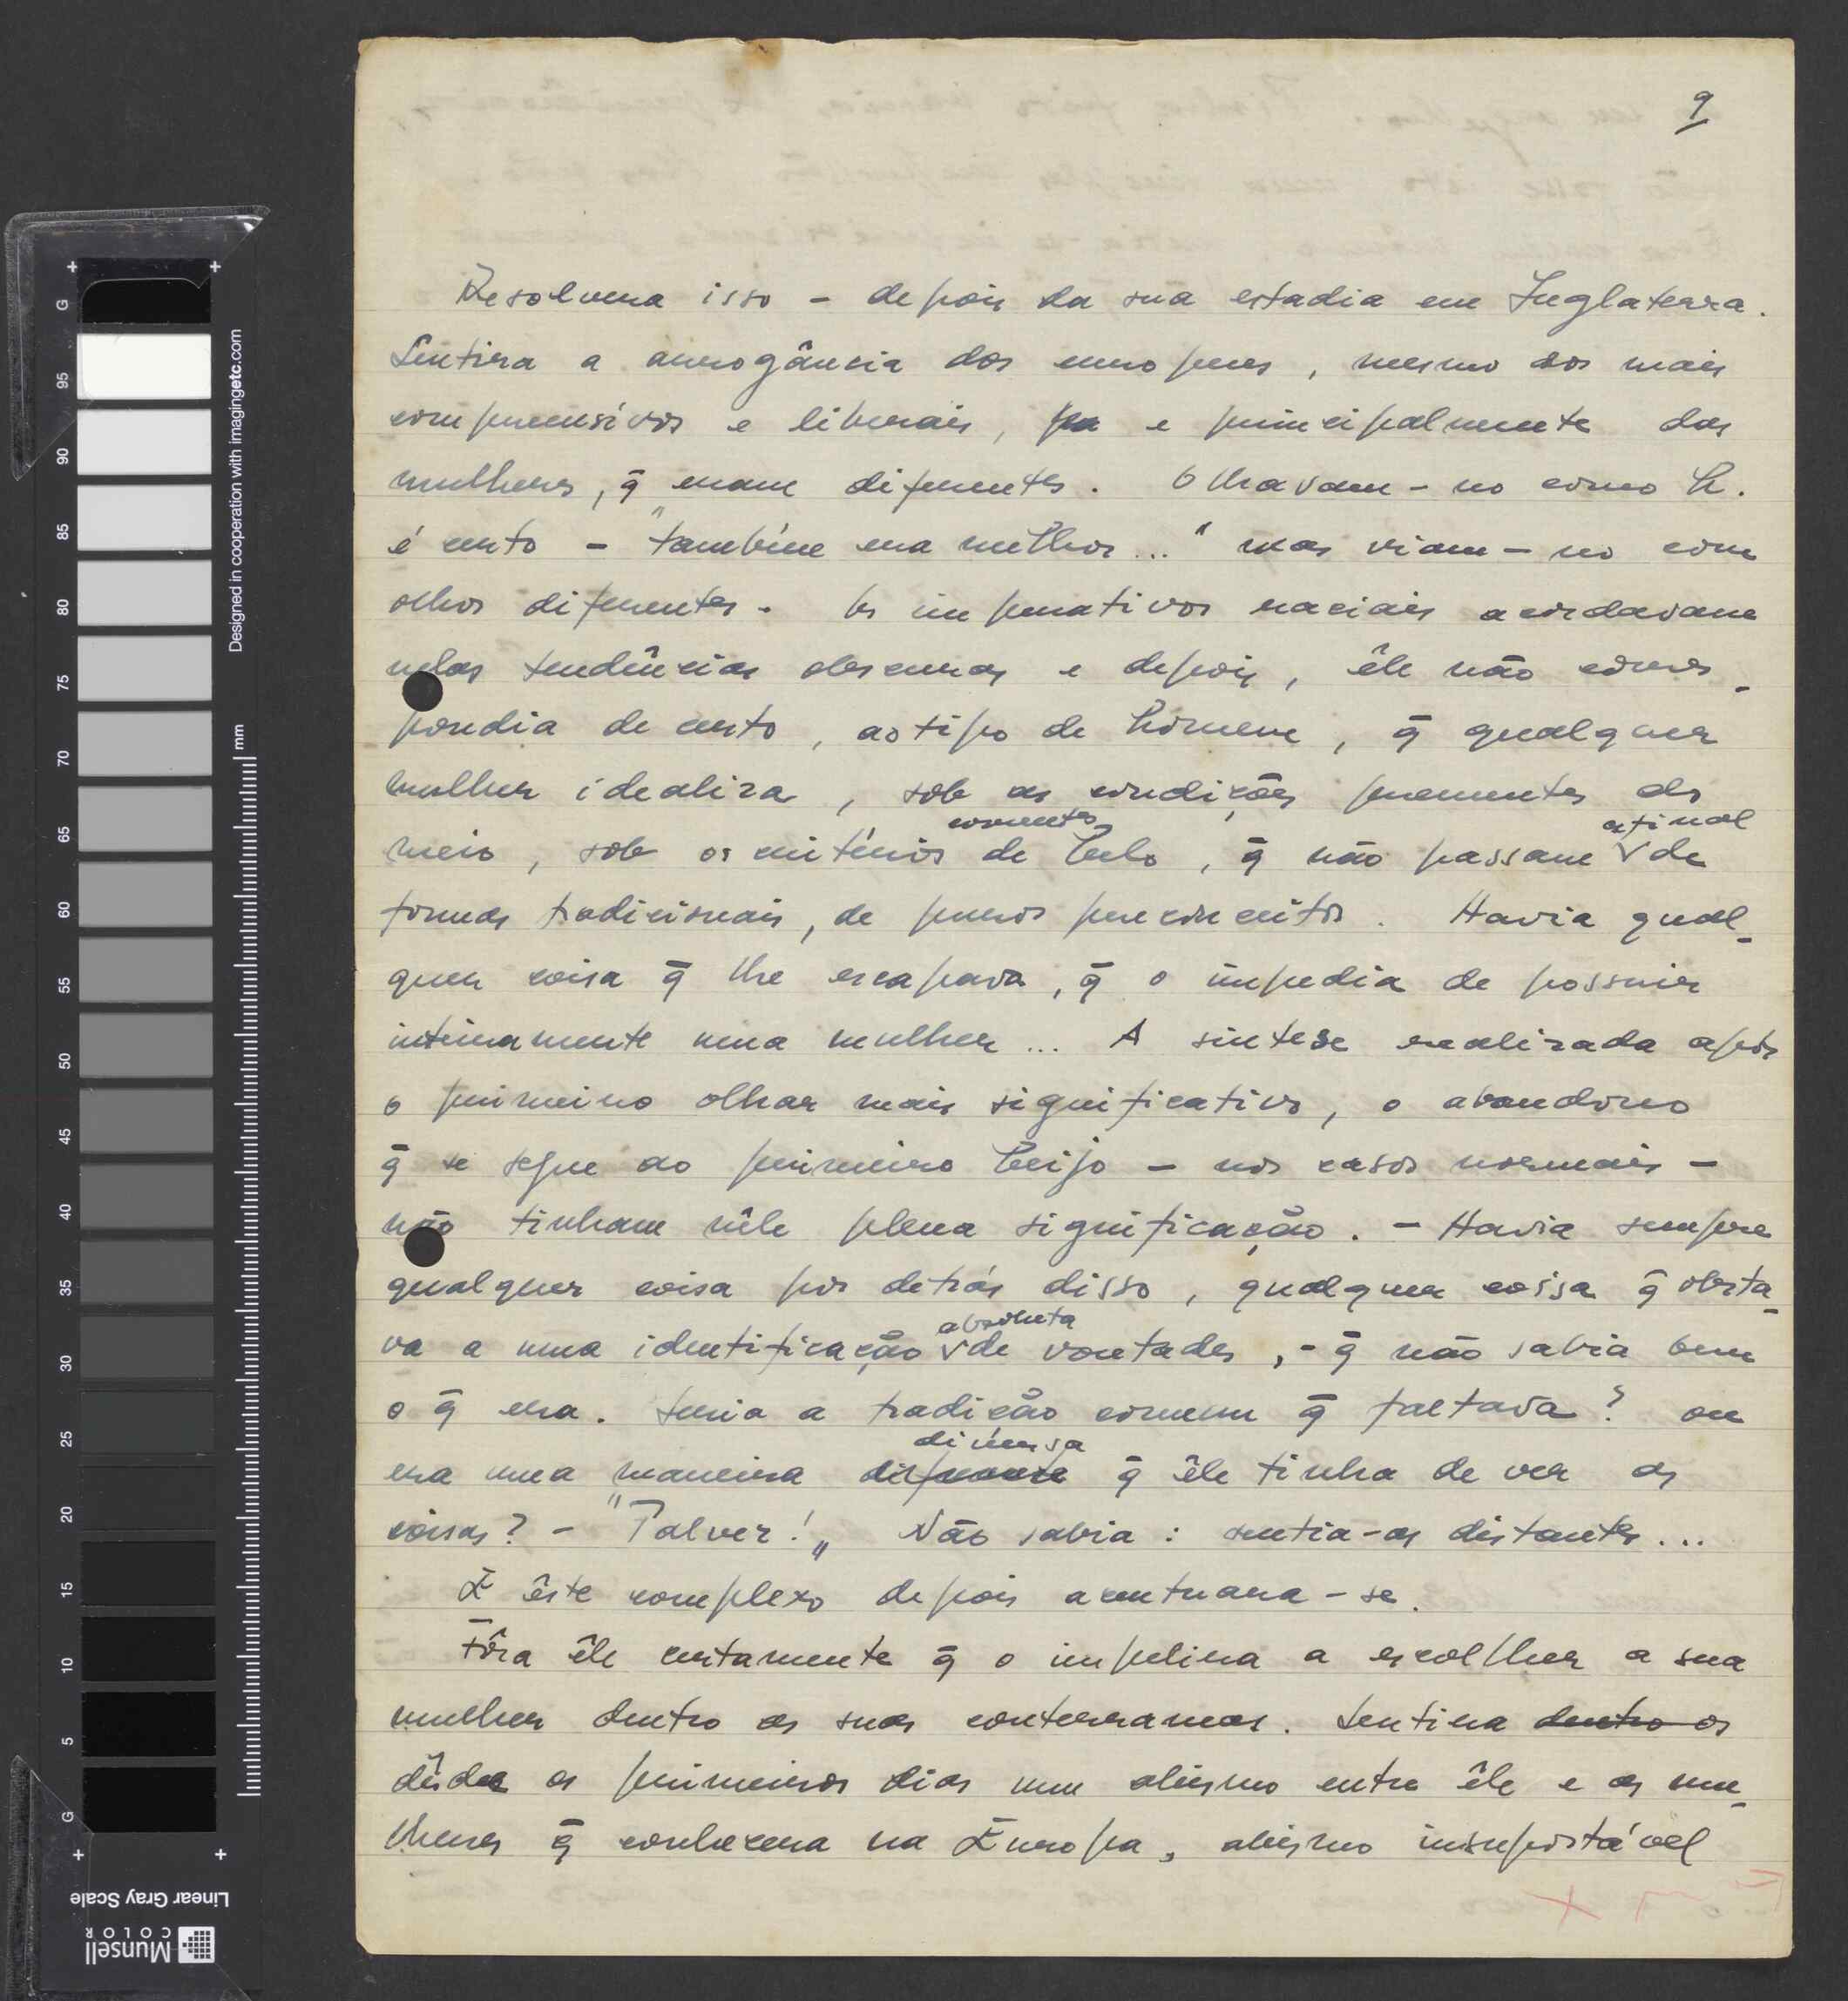 9
Resolvera isso – depois da sua estadia em Inglaterra.
Sentira a arrogância dos europeus, mesmo dos mais
compreensivos e liberais, pa e principalmente das
mulheres, q̄ eram diferentes. Olhavam-no como h.
é certo – "também era melhor..." mas viam-no com
olhos diferentes. Os imperativos raciais acordavam
nelas tendências obscuras e depois, êle não corres-
pondia de certo, ao tipo de homem, q̄ qualquer
mulher idealiza, sob as condições prementes do
correntes afinal
meio, sob os critérios de belo, q̄ não passam de
formas tradicionais, de puros preconceitos. Havia qual-
quer coisa q̄ lhe escapava, q̄ o impedia de possuir
inteiramente uma mulher... A sintese realizada após
o primeiro olhar mais significativo, o abandono
q̄ se segue ao primeiro beijo – nos casos normais –
não tinham nêle plena significação. – Havia sempre
qualquer coisa por detrás disso, qualquer coisa q̄ obsta-
absoluta
va a uma identificação de vontades, - q̄ não sabia bem
o q̄ era. Seria a tradição comum q̄ faltava? ou
diversa
era uma maneira diferente q̄ êle tinha de ver as
coisas? – "Talvez!„ Não sabia: sentia-as distantes...
E êste complexo depois acentuara-se.
Fôra êle certamente q̄ o impelira a escolher a sua
mulher dentro as suas conterraneas. Sentira dentro os
dêsde os primeiros dias um abismo entre êle e as mu-
lheres q̄ conhecera na Europa, abismo insuportável
Designed in cooperation with imagingetc.com
mm
G
95
90
85
80
75
70
65
60
55
50
45
40
35
30
25
20
15
10
5
G
Linear Gray Scale
Munsell
COLOR